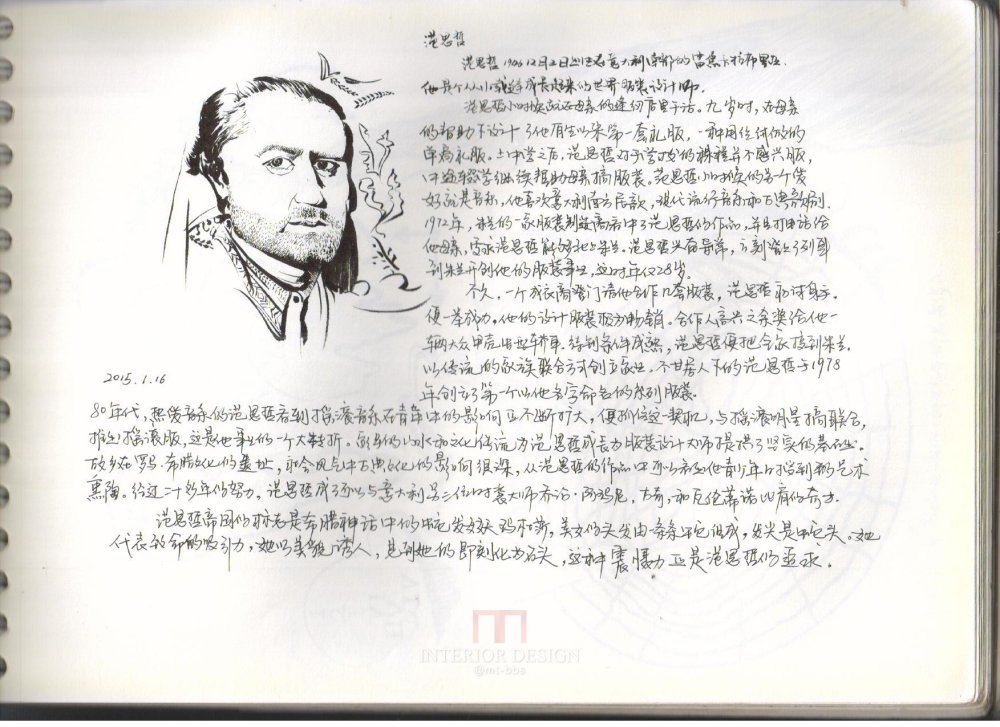 范思哲
范思哲1946 12月2日出生在意大利南部的雷焦卡拉布里亚.
他是个从小就这样成长起来的世界服装设计师.
范思哲小时候就在母亲的缝纫店里干活。九岁时,在母亲
的帮助下设计了他有生以来第一套礼服,一种用丝绒做的
单肩礼服。上中学之后,范思哲对于学校的课程并不感兴趣,
中途辍学继续帮助母亲搞服装。范思哲小时候的另个爱
好就是音乐,他喜欢意大利南方民歌,现代流行音乐和古典歌剧.
1972年,米兰的一家服装制造商看中了范思哲的作品,并且打电话给
他母亲,要求范思哲能够北上米兰。范思哲兴奋异常,立刻登上了列车
到米兰开创他的服装事业,这时年仅28岁。
不久,一个成衣商登门请他创作几套服装,范思哲初试身手.
便一举成功。他的设计服装极为畅销。合作人高兴之余奖给他一
辆大众甲壳虫牌轿车.待到条件成熟,范思哲便把全家接到米兰.
以传统的家族联合方式创立家业.不甘居人下的范思哲于1978
年创立了第一个以他名字命名的系列服装
2015.1.16
80年代,热爱音乐的范思哲看到摇滚音乐在青年中的影响正不断扩大,便抓住这一契机,与摇滚明星搞联合,
推出摇滚服,这是他事业的一个大转折。家乡的文化传统为范思哲成长为服装设计大师提供了坚实的基础.
故乡在罗马·希腊文化的遗址,至今风气中古典文化的影响很深,从范思哲的作品中可以看出他青少年时得到的艺术
熏陶。经过二十多年的努力。范思哲成了可以与意大利另三位时装大师乔治·阿玛尼.古奇,和瓦伦蒂诺比肩的奇才.
范思哲帝国的标志是希腊神话中的蛇发女妖玛杜斯,美女的头发由条条蛇组成,发尖是蛇头。她
代表致命的吸引力,她以美貌诱人,见到她的即刻化为石头,这种震慑力正是范思哲的追求.
INTERIOR DESIGN
@mt-bbs